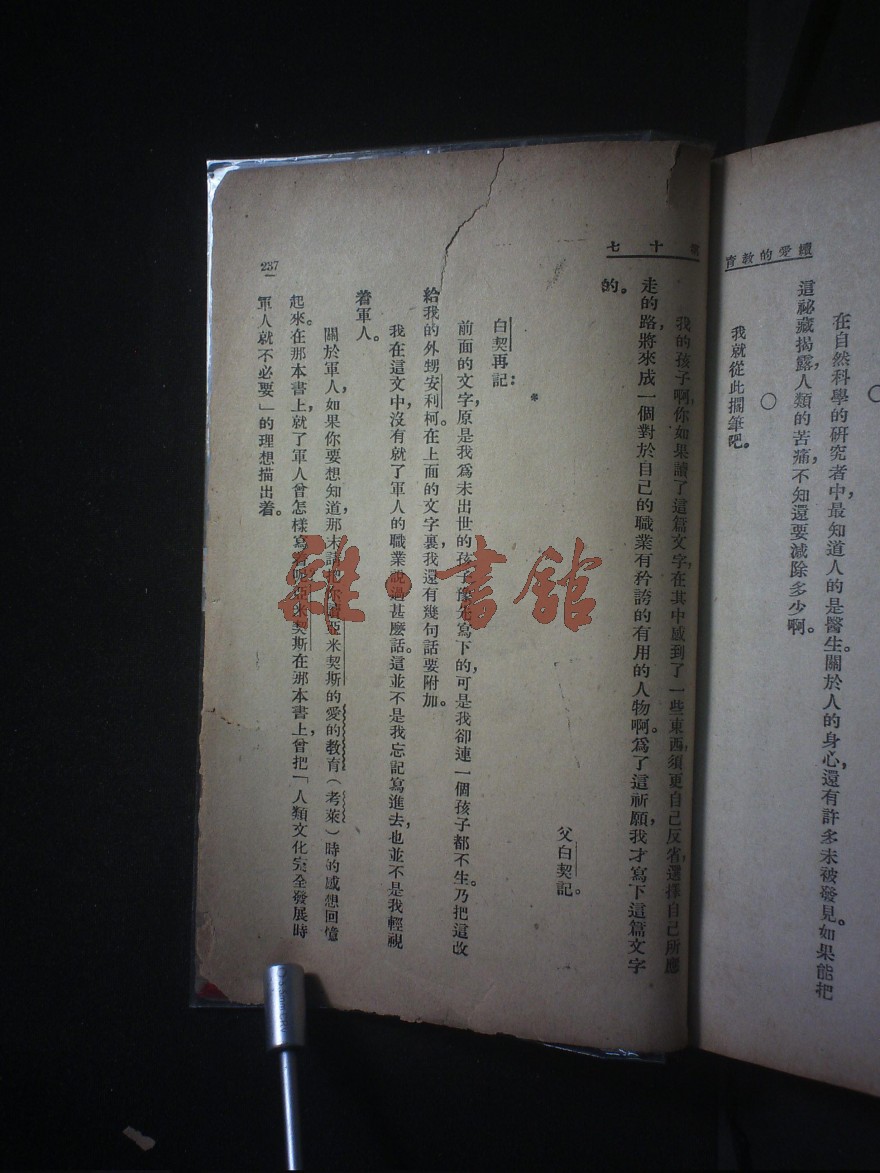 續愛的教育
○
在自然科學的研究者中，最知道人的是醫生。關於人的身心，還有許多未被發見，如果能把
這祕藏揭露，人類的苦痛，不知還要減除多少啊。
○
我就從此擱筆吧。
十七
我的孩子啊，你如果讀了這篇文字，在其中感到了一些東西，須更自己反省，選擇自己所應
走的路，將來成一個對於自己的職業有矜誇的有用的人物啊。爲了這祈願，我才寫下這篇文字
的。
父白契記。
*
白契再記：
前面的文字，原是我爲未出世的孩子豫先寫下的，可是我卻連一個孩子都不生。乃把這改
給我的外甥安利柯。在上面的文字裏，我還有幾句話要附加。
我在這文中，沒有就了軍人的職業說過甚麼話。這並不是我忘記寫進去，也並不是我輕視
着軍人。
關於軍人，如果你要想知道，那末請把你讀亞米契斯的愛的教育（考萊）時的感想回憶
起來。在那本書上，就了軍人曾怎樣寫着呢？亞米契斯在那本書上，曾把「人類文化完全發展時，
軍人就不必要」的理想描出着。
237
雜·書館